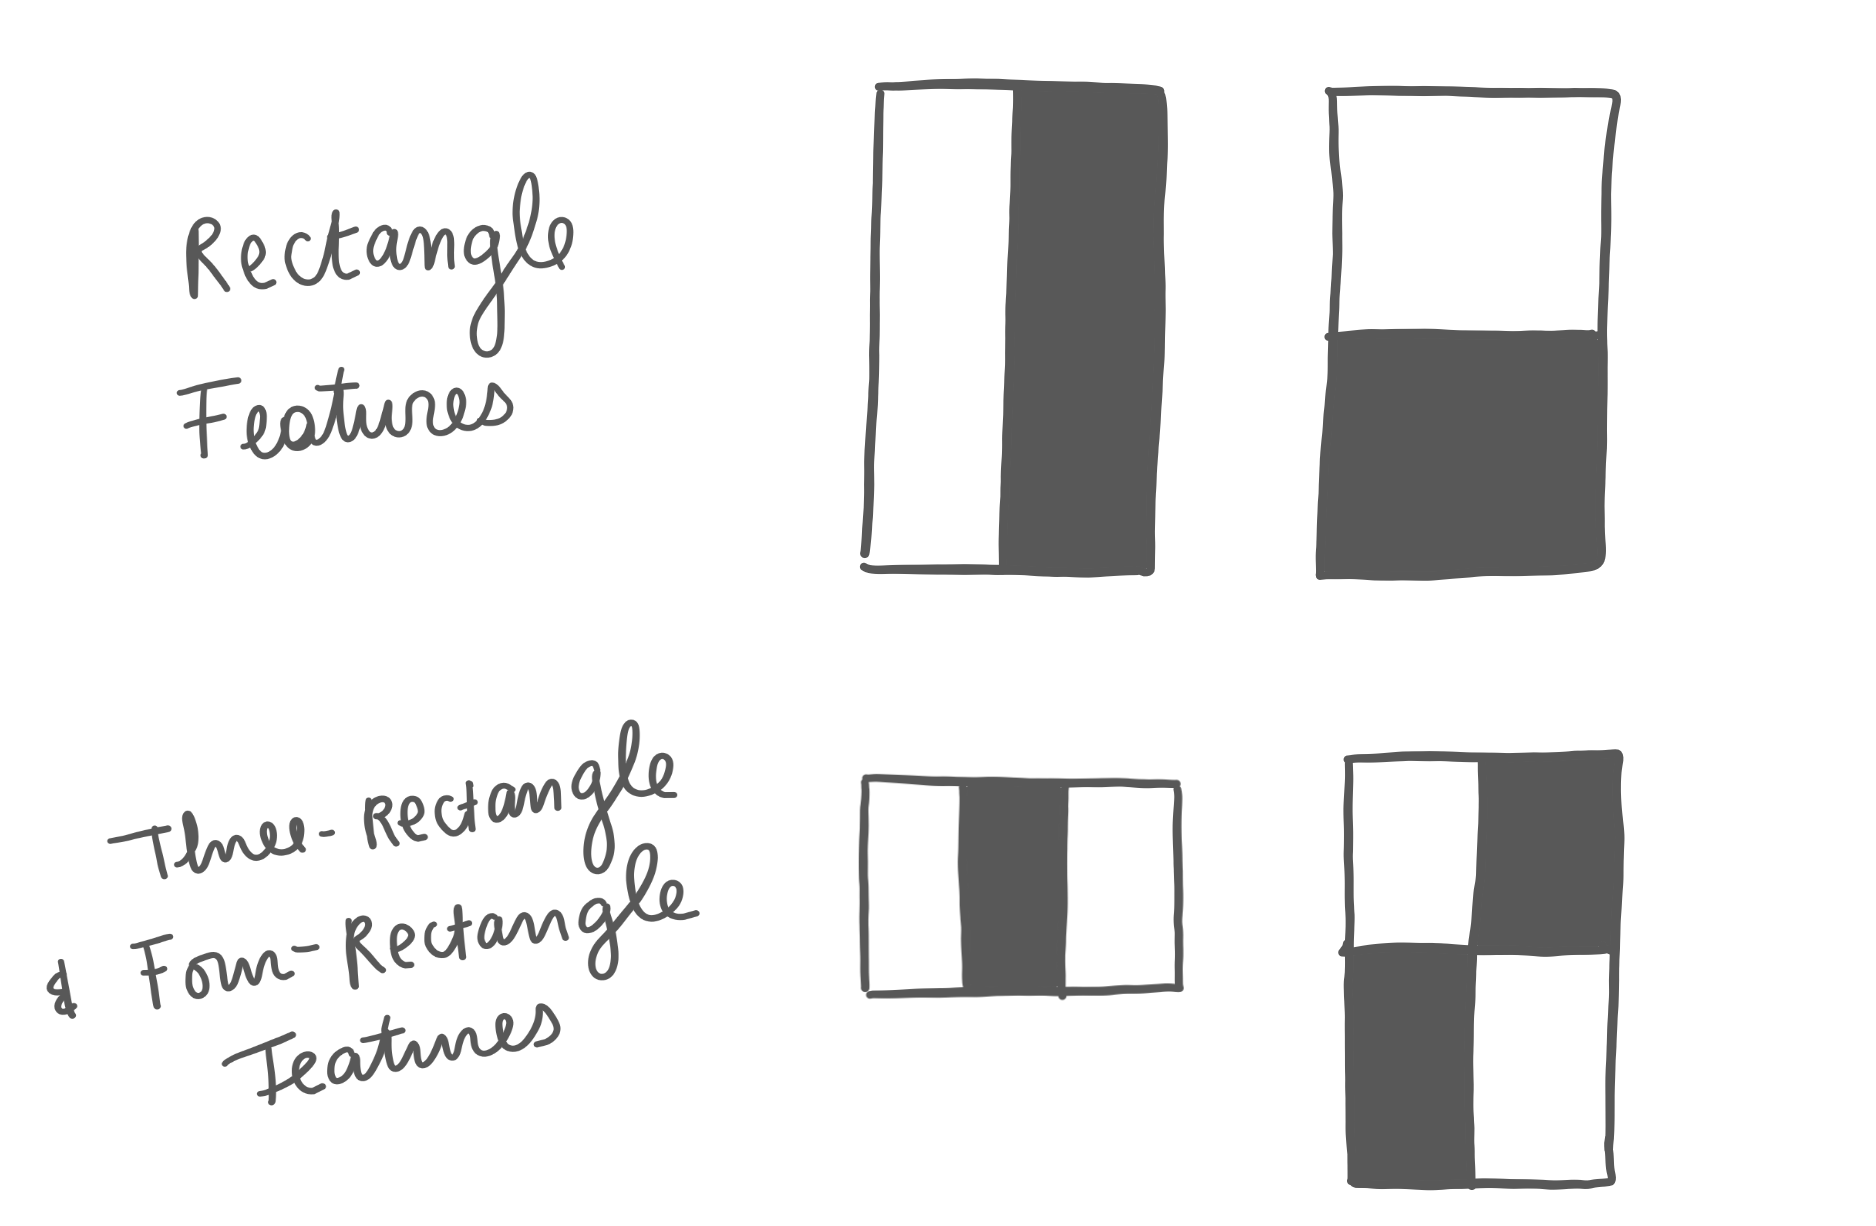 Rectangle
Features
Three-Rectangle
& Four-Rectangle
Features